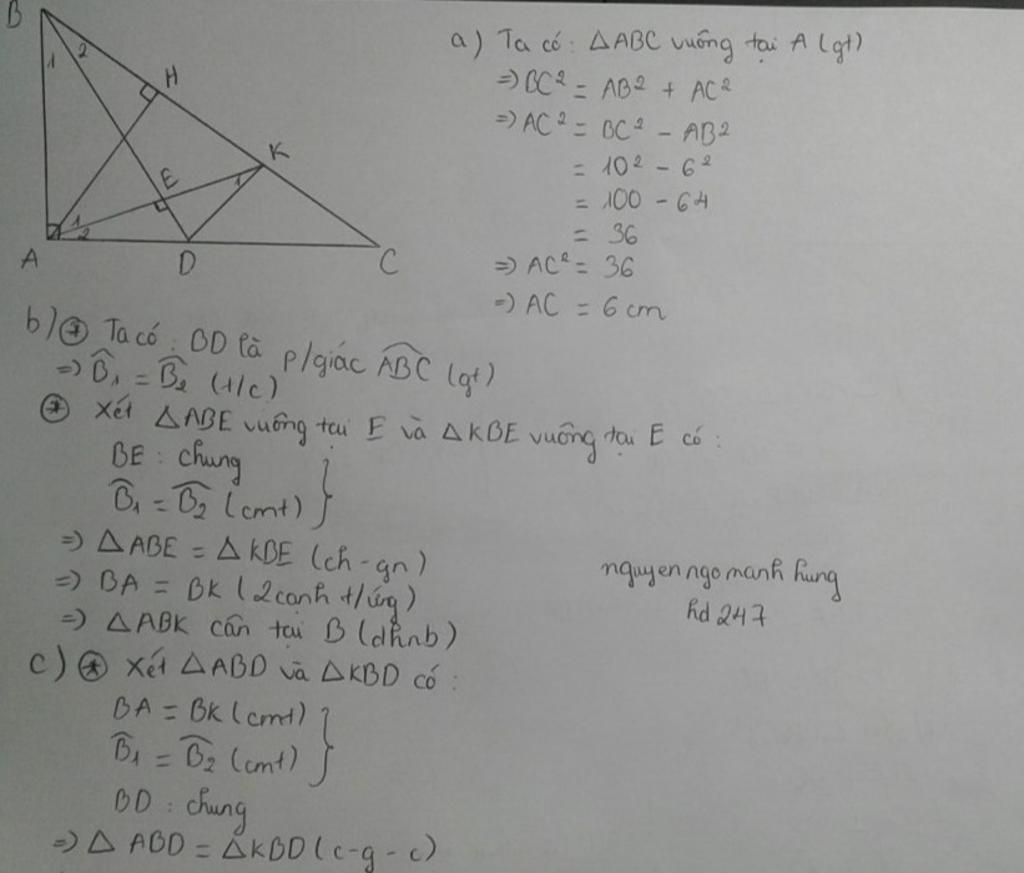 B
1 2
H
K
E
1
1
2
A
D
C
a) Ta có : △ABC vuông tại A (gt)
=> BC² = AB² + AC²
=> AC² = BC² - AB²
= 10² - 6²
= 100 - 64
= 36
=> AC² = 36
=> AC = 6 cm
b) * Ta có : BD là p/giác ABC (gt)
=> B̂₁ = B̂₂ (t/c)
* Xét △ABE vuông tại E và △KBE vuông tại E có :
BE : chung
B̂₁ = B̂₂ (cmt)
=> △ABE = △KBE (ch - gn)
=> BA = BK (2 cạnh t/ứg)
=> △ABK cân tại B (dhnb)
nguyen ngo manh hung
hd 247
c) * Xét △ABD và △KBD có :
BA = BK (cmt)
B̂₁ = B̂₂ (cmt)
BD : chung
=> △ABD = △KBD (c - g - c)